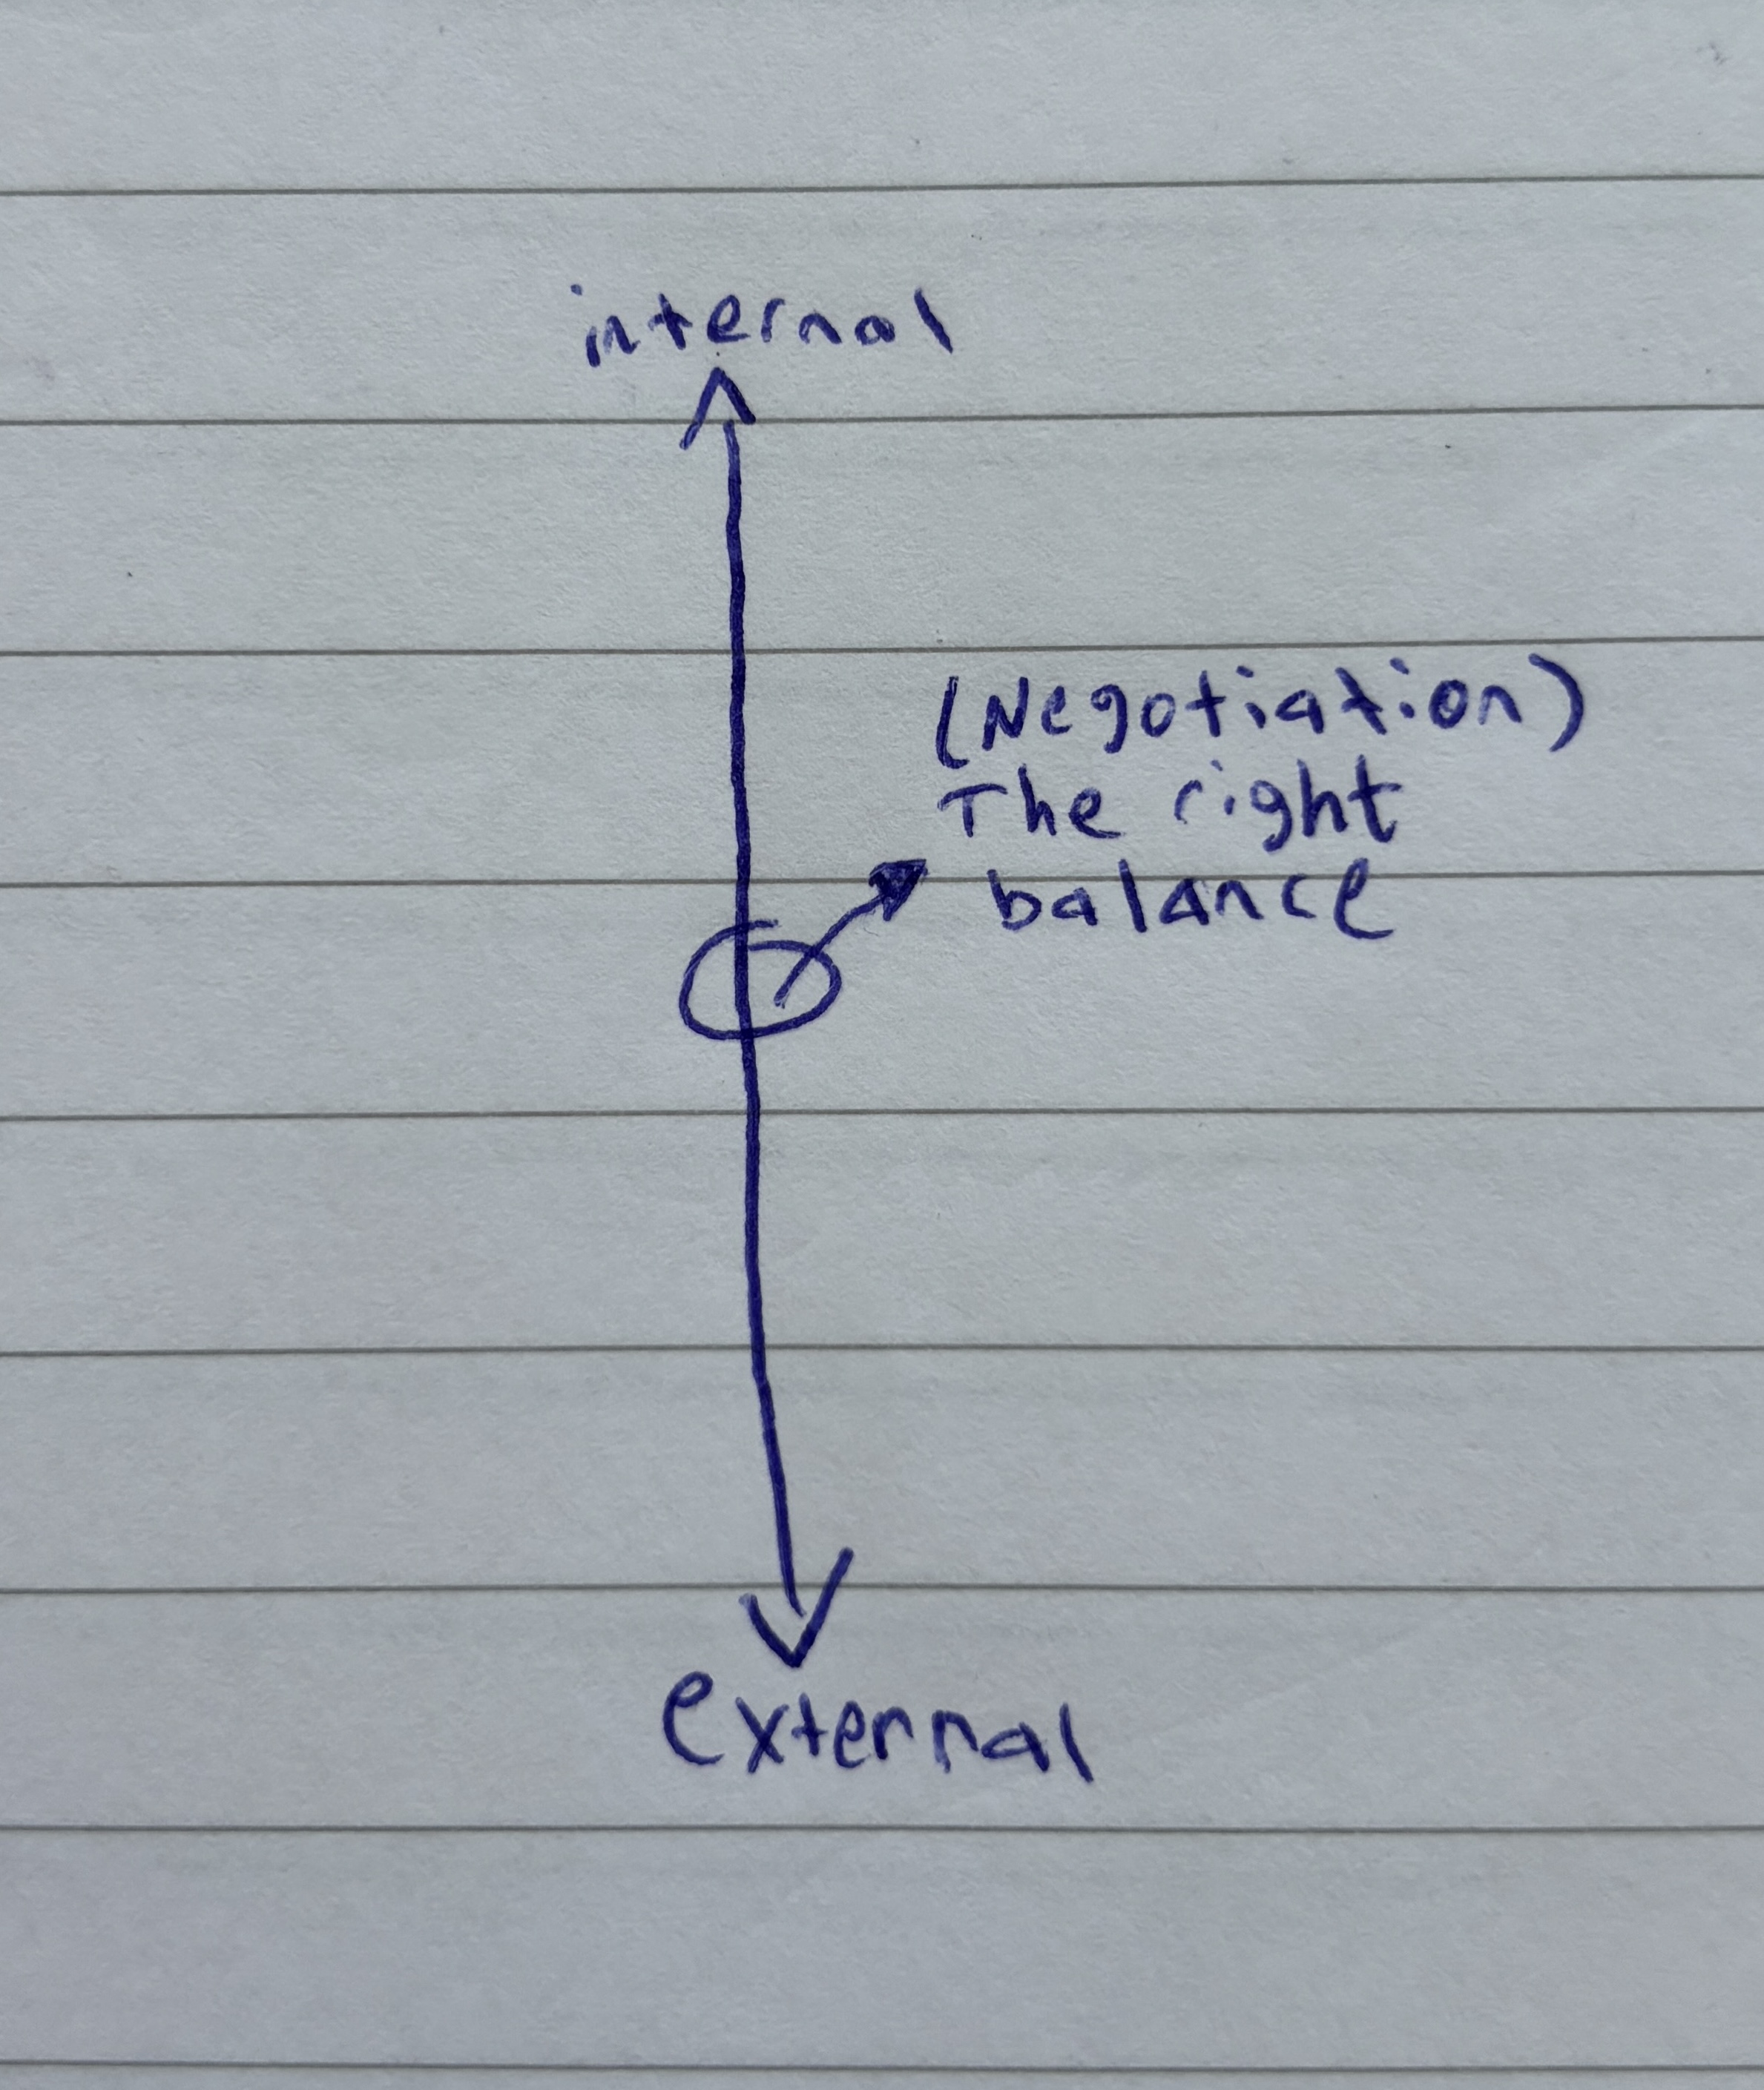 internal
(Negotiation)
The right
balance
external